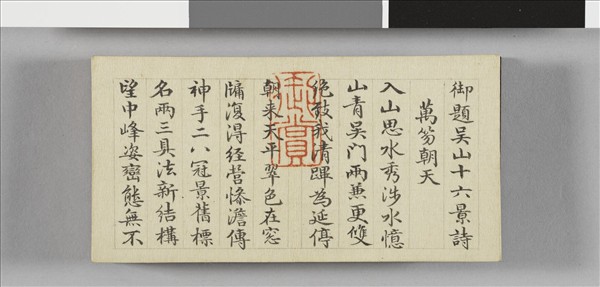 御題吳山十六景詩
萬笏朝天
入山思水秀涉水憶
山青吳門兩兼更雙
絶致我清蹕為延停
朝来天平翠色在窓
牖復得経營慘澹傳
神手二八冠景舊標
名兩三具法新結構
望中峰姿巒態無不
御賞